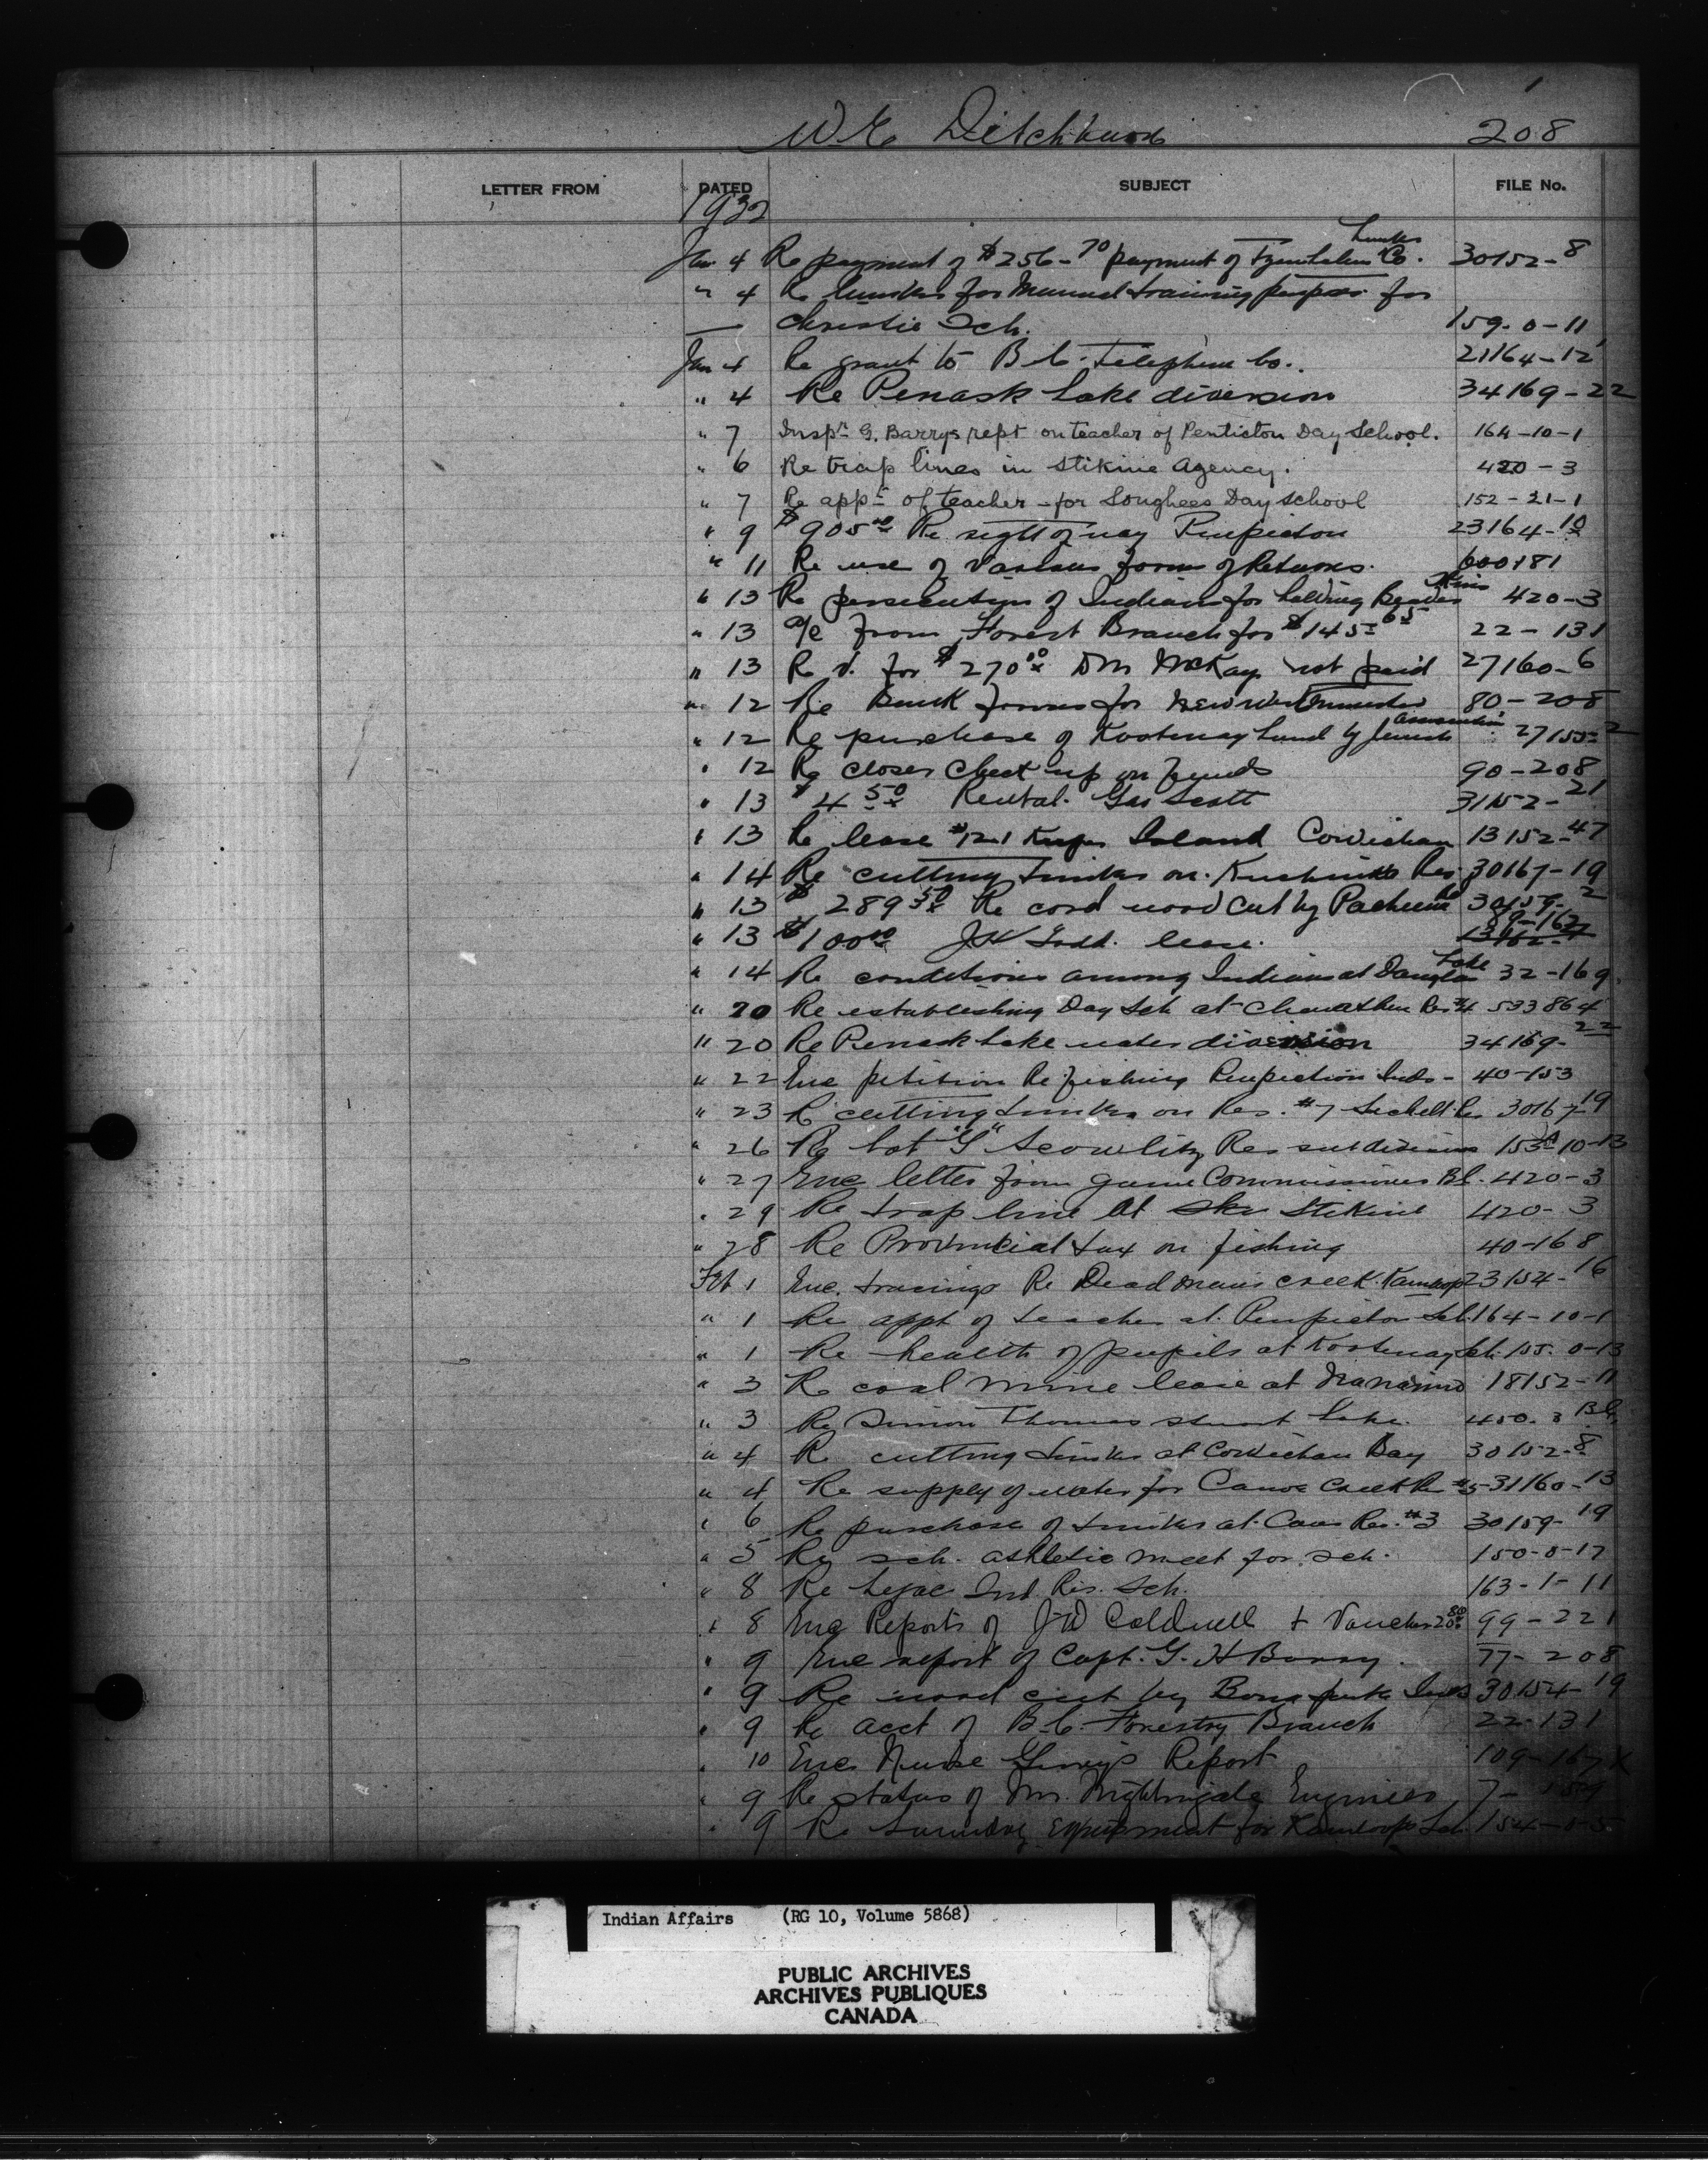 W E Ditchburn 208
LETTER FROM DATED SUBJECT FILE No.
1932
Jan 4 Re payment of $256-70 payment of Lumber Co. 30152-8
" 4 Re lumber for Manual training purposes for
Christie Sch. 159-0-11
Jan 4 Re grant to B C Telephone Co. 21164-12
" 4 Re Penask Lake diversion 34169-22
" 7 Inspr G. Barrys rept on teacher of Penticton Day School. 164-10-1
" 6 Re trap lines in Stikine Agency. 420-3
" 7 Re appt of teacher for Songhees Day School 152-21-1
" 9 $905 00 Re right of way Penticton 23164-10
" 11 Re use of various forms of Returns. 600181
" 13 Re of Indians for holding Beaver Skins 420-3
" 13 a/c from Forest Branch for $145 65 22-131
" 13 Re V. for $270 00 DM McKay not paid 27160-6
" 12 Re Bank forms for New Westminster 80-208
" 12 Re purchase of Kootenay Land by Jewish Association 27155-2
" 12 Re closer check up on funds 90-208
" 13 $4 50 Rental. Geo Scott 31152-21
" 13 Re lease #121 Kuper Island Cowichan 13152-47
" 14 Re cutting timber on Res. 30167-19
" 13 $289 50 Re cord wood cut by 30159-2
" 13 $100 00 J W lease. 89-162
" 14 Re conditions among Indians at Douglas Lake 32-169
" 20 Re establishing Day Sch at Chawathen Res #4 533864
" 20 Re Penask Lake water diversion 34169-22
" 22 Enc petition Re fishing Penticton Inds - 40-153
" 23 Re cutting timber on Res. #7 Sechelt 30167-19
" 26 Re Lot "G" Scowlitz Res subdivision 153-10-13
" 27 Enc letter from Game Commissioner B C. 420-3
" 29 Re trap line at Stikine 420-3
" 28 Re Provincial tax on fishing 40-168
Feb 1 Enc. tracings Re Dead mans creek. Kamloops 23154-16
" 1 Re appt of teacher at Penticton Sch. 164-10-1
" 1 Re health of pupils at Kootenay Sch. 155-0-13
" 3 Re coal mine lease at Nanaimo 18152-11
" 3 Re Simon Thomas Stuart Lake. 420-3 BC
" 4 Re cutting timber at Cowichan Bay 30152-8
" 4 Re supply of water for Canoe Creek Res #5 31160-13
" 6 Re purchase of timber at Res. #3 30159-19
" 5 Re sch. athletic meet for sch. 150-8-17
" 8 Re Lejac Ind. Res. Sch. 163-1-11
" 8 Enc Reports of J D Caldwell + Voucher 99-221
" 9 Enc report of Capt. G. H Barry. 77-208
" 9 Re wood cut by Bonaparte Inds 30154-19
" 9 Re acct of B.C. Forestry Branch 22-131
" 10 Enc Nurse Report 109-167
" 9 Re status of Mr. Nightingale Engineer 7-
" 9 Re laundry equipment for Kamloops Sch 154-
Indian Affairs (RG 10, Volume 5868)
PUBLIC ARCHIVES
ARCHIVES PUBLIQUES
CANADA